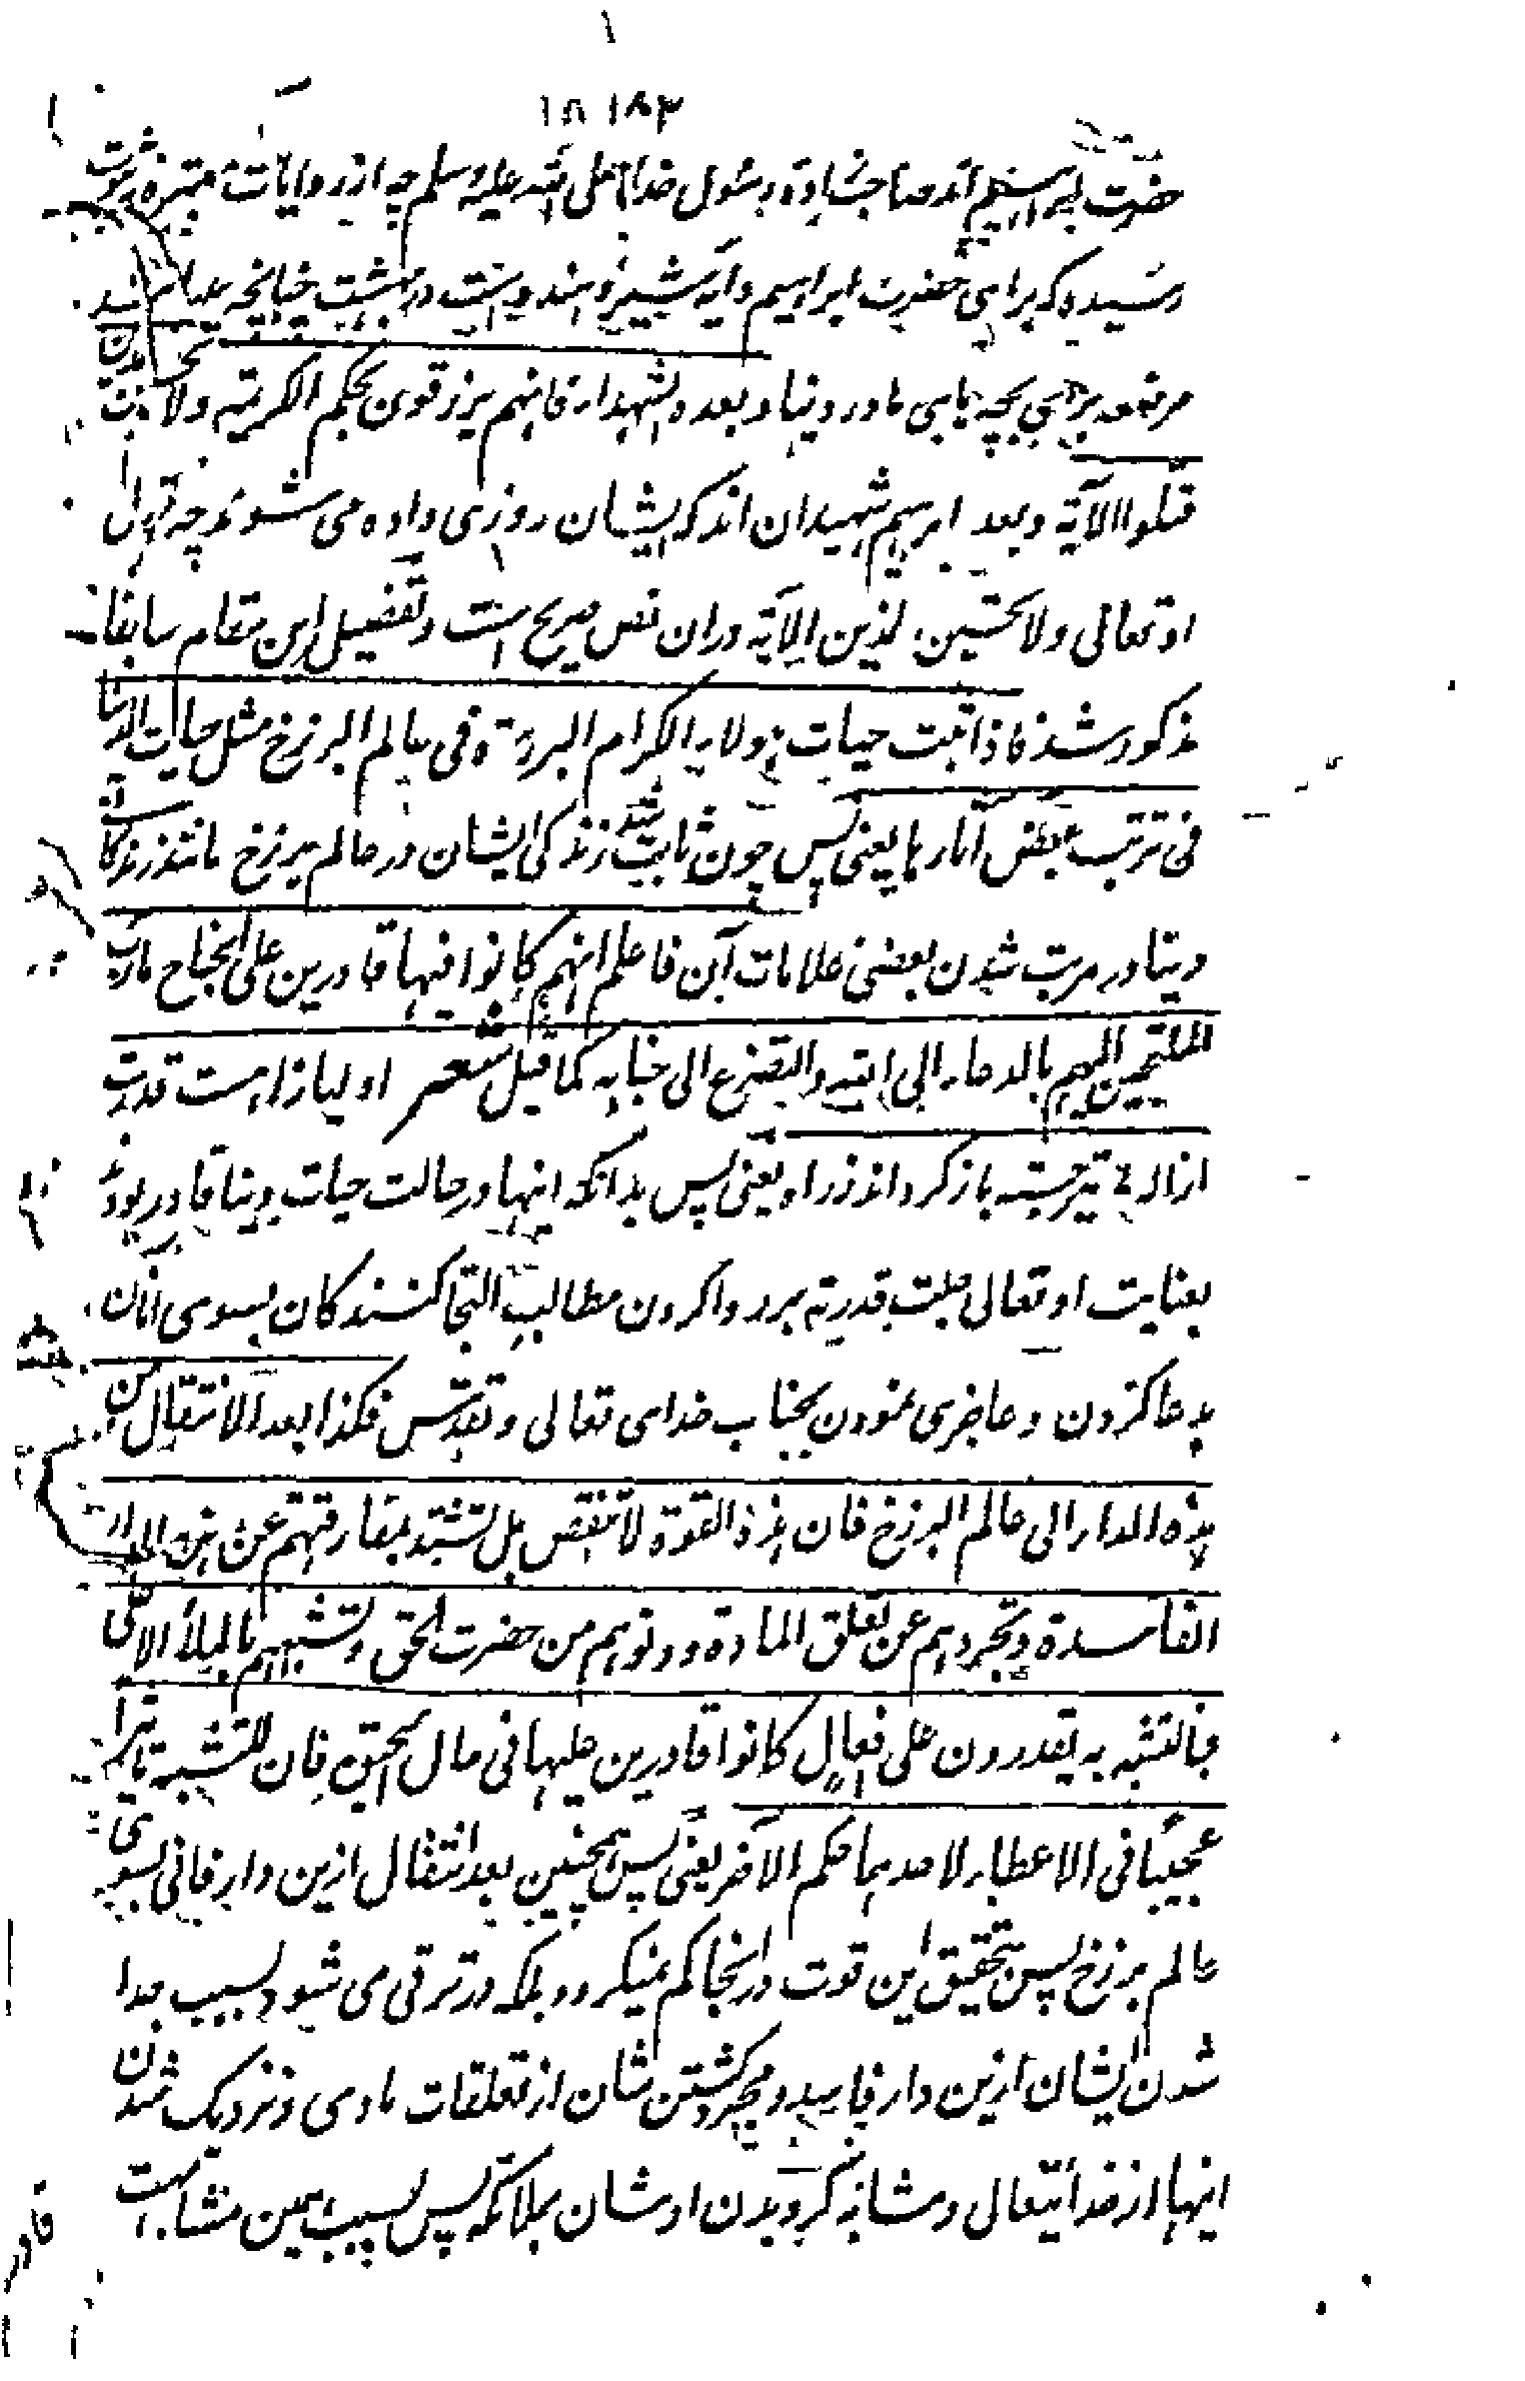 ۱۸۳
حضرت ابراهیم اند صاحبزاده رسول خدا صلی الله علیه وسلم چه از روایات معتبره بثبوت
رسیده که برای حضرت ابراهیم دایه شیر دهنده است در بهشت چنانچه
مرضعه برای بچه های مادر دنیا و بعده الشهداء فانهم یرزقون بحکم الکریمة ولا تحسبن الذین
قتلوا الآیة وبعد ابراهیم شهیدان اند که ایشان روزی داده می شوند چه قول
او تعالی ولا تحسبن الذین الآیة دران نص صریح است و تفصیل این مقام سابقا
مذکور شد فاذا ثبت حیات هولاء الکرام البررة فی عالم البرزخ مثل حیات الدنیا
فی ترتب بعض آثارها یعنی پس چون ثابت شد زندگی ایشان در عالم برزخ مانند زندگانی
دنیا در مرتب شدن بعضی علامات آن فاعلم انهم کانوا فیها قادرین علی انجاح مآرب
الملتجین الیهم بالدعاء الی الله والتضرع الی جنابه کما قیل شعر اولیا را هست قدرت
از اله تیر جسته باز گرداند ز راه یعنی پس بدانکه اینها در حالت حیات دنیا قادر بودند
بعنایت او تعالی جلت قدرته بر روا کردن مطالب التجا کنندگان بسوی شان
بدعا کردن و عاجزی نمودن بجناب خدای تعالی و تقدس فکذا بعد الانتقال من
هذه الدار الی عالم البرزخ فان هذه القوة لا تنقص بل تشتد بمفارقتهم عن هذه الدار
الفاسدة وتجردهم عن تعلق المادة ودنوهم من حضرت الحق وتشبههم بالملأ الاعلی
فبالتشبه به یقدرون علی افعال کانوا قادرین علیها فی حال الحیوة فان للتشبه تاثیرا
عجیبا فی الاعطاء لاحدهما حکم الآخر یعنی پس همچنین بعد انتقال ازین دار فانی بسوی
عالم برزخ پس بتحقیق این قوت در آنجا کم نمیگردد بلکه در ترقی می شود بسبب جدا
شدن ایشان ازین دار فاسد و مجرد گشتن شان از تعلقات مادی و نزدیک شدن
اینها از خدا تعالی و مشابه گردیدن اوشان بملائکه پس بسبب همین مشابهت
قادر